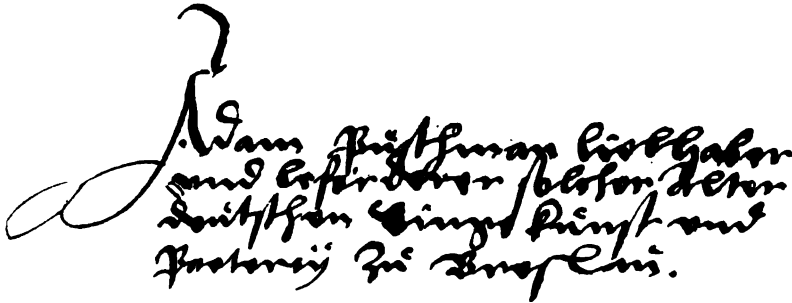 Adam Püschman liebhaber
und beförderer solcher Alter
deutschen Singe künst und
Poeterey zu Breslau.